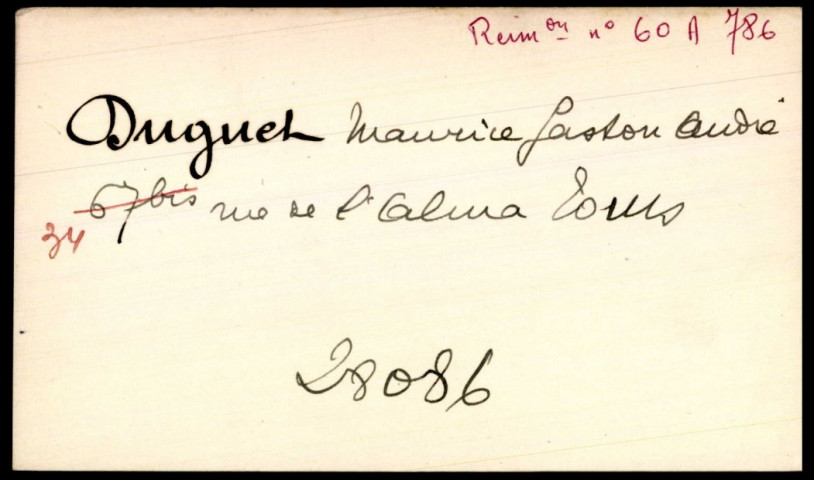 Reimon n° 60 A 786
Duguet Maurice Gaston André
67bis rue de l'Alma Tours
34
28086